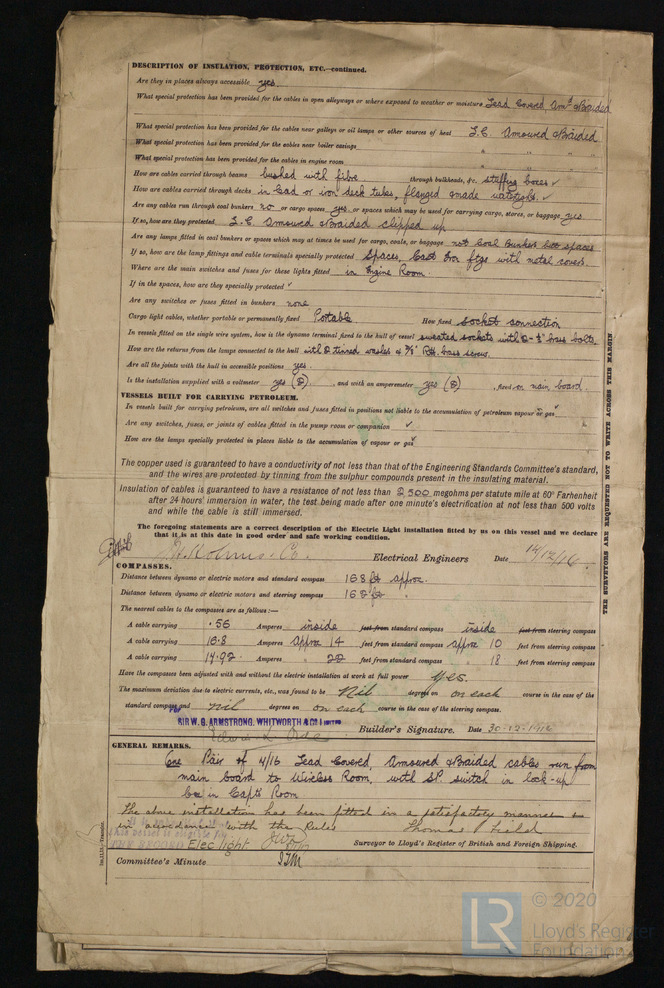 DESCRIPTION OF INSULATION, PROTECTION, ETC.—continued.
Are they in places always accessible yes.
What special protection has been provided for the cables in open alleyways or where exposed to weather or moisture Lead Covered Amd & Braided
What special protection has been provided for the cables near galleys or oil lamps or other sources of heat L.C. Amoured & Braided
What special protection has been provided for the cables near boiler casings " " "
What special protection has been provided for the cables in engine room " " "
How are cables carried through beams bushed with fibre through bulkheads, &c. stuffing boxes ✓
How are cables carried through decks in Lead or iron deck tubes, flanged & made watertight. ✓
Are any cables run through coal bunkers no or cargo spaces yes or spaces which may be used for carrying cargo, stores, or baggage yes
If so, how are they protected L.C Amoured & Braided clipped up
Are any lamps fitted in coal bunkers or spaces which may at times be used for cargo, coals, or baggage not Coal Bunkers but spaces
If so, how are the lamp fittings and cable terminals specially protected Spaces, Cast Iron ftgs with metal covers.
Where are the main switches and fuses for these lights fitted in Engine Room.
If in the spaces, how are they specially protected ✓
Are any switches or fuses fitted in bunkers none
Cargo light cables, whether portable or permanently fixed Portable How fixed socket connection
In vessels fitted on the single wire system, how is the dynamo terminal fixed to the hull of vessel sweated sockets with 2- ½" brass bolts.
How are the returns from the lamps connected to the hull with 2 tinned washes & brass screws.
Are all the joints with the hull in accessible positions yes.
Is the installation supplied with a voltmeter yes (2), and with an amperemeter yes (2), fixed on main board
VESSELS BUILT FOR CARRYING PETROLEUM.
In vessels built for carrying petroleum, are all switches and fuses fitted in positions not liable to the accumulation of petroleum vapour or gas ✓
Are any switches, fuses, or joints of cables fitted in the pump room or companion ✓
How are the lamps specially protected in places liable to the accumulation of vapour or gas ✓
The copper used is guaranteed to have a conductivity of not less than that of the Engineering Standards Committee's standard,
and the wires are protected by tinning from the sulphur compounds present in the insulating material.
Insulation of cables is guaranteed to have a resistance of not less than 2500 megohms per statute mile at 60° Farhenheit
after 24 hours' immersion in water, the test being made after one minute's electrification at not less than 500 volts
and while the cable is still immersed.
The foregoing statements are a correct description of the Electric Light installation fitted by us on this vessel and we declare
that it is at this date in good order and safe working condition.
J. Holmes & Co. Electrical Engineers Date 14/12/16
COMPASSES.
Distance between dynamo or electric motors and standard compass 168 ft approx.
Distance between dynamo or electric motors and steering compass 162 ft "
The nearest cables to the compasses are as follows:—
A cable carrying .56 Amperes inside feet from standard compass inside feet from steering compass
A cable carrying 16.8 Amperes Approx 14 feet from standard compass approx 10 feet from steering compass
A cable carrying 17.92 Amperes " 22 feet from standard compass " 18 feet from steering compass
Have the compasses been adjusted with and without the electric installation at work at full power yes.
The maximum deviation due to electric currents, etc., was found to be Nil degrees on on each course in the case of the
standard compass and nil degrees on on each course in the case of the steering compass.
FOR
SIR W. G. ARMSTRONG, WHITWORTH & CO LIMITED
Builder's Signature. Date 30-12-1916
GENERAL REMARKS.
One Pair of 4/16 Lead Covered, Amoured & Braided cables run from
main board to Wireless Room, with SP. switch in lock-up
box in Capts Room
The above installation has been fitted in a satisfactory manner &
in accordance with the Rules Thomas Field
Elec light Surveyor to Lloyd's Register of British and Foreign Shipping.
Committee's Minute
THE SURVEYORS ARE REQUESTED NOT TO WRITE ACROSS THIS MARGIN
© 2020
LR
Lloyd's Register
Foundation